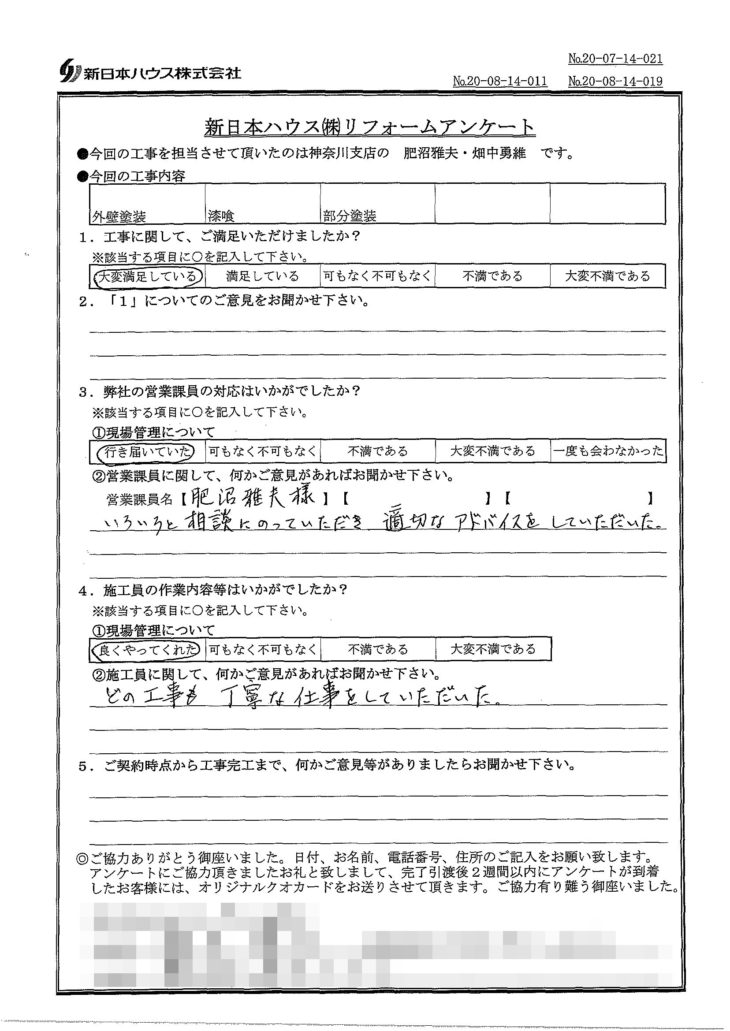 新日本ハウス株式会社
№20-07-14-021
№20-08-14-011 №20-08-14-019
新日本ハウス㈱リフォームアンケート
●今回の工事を担当させて頂いたのは神奈川支店の 肥沼雅夫・畑中勇維 です。
●今回の工事内容
外壁塗装 漆喰 部分塗装
1．工事に関して、ご満足いただけましたか？
※該当する項目に○を記入して下さい。
大変満足している 満足している 可もなく不可もなく 不満である 大変不満である
2．「1」についてのご意見をお聞かせ下さい。
3．弊社の営業課員の対応はいかがでしたか？
※該当する項目に○を記入して下さい。
①現場管理について
行き届いていた 可もなく不可もなく 不満である 大変不満である 一度も会わなかった
②営業課員に関して、何かご意見があればお聞かせ下さい。
営業課員名【肥沼雅夫様】【 】【 】
いろいろと相談にのっていただき 適切なアドバイスをしていただいた。
4．施工員の作業内容等はいかがでしたか？
※該当する項目に○を記入して下さい。
①現場管理について
良くやってくれた 可もなく不可もなく 不満である 大変不満である
②施工員に関して、何かご意見があればお聞かせ下さい。
どの工事も 丁寧な仕事をしていただいた。
5．ご契約時点から工事完工まで、何かご意見等がありましたらお聞かせ下さい。
◎ご協力ありがとう御座いました。日付、お名前、電話番号、住所のご記入をお願い致します。
アンケートにご協力頂きましたお礼と致しまして、完了引渡後２週間以内にアンケートが到着
したお客様には、オリジナルクオカードをお送りさせて頂きます。ご協力有り難う御座いました。